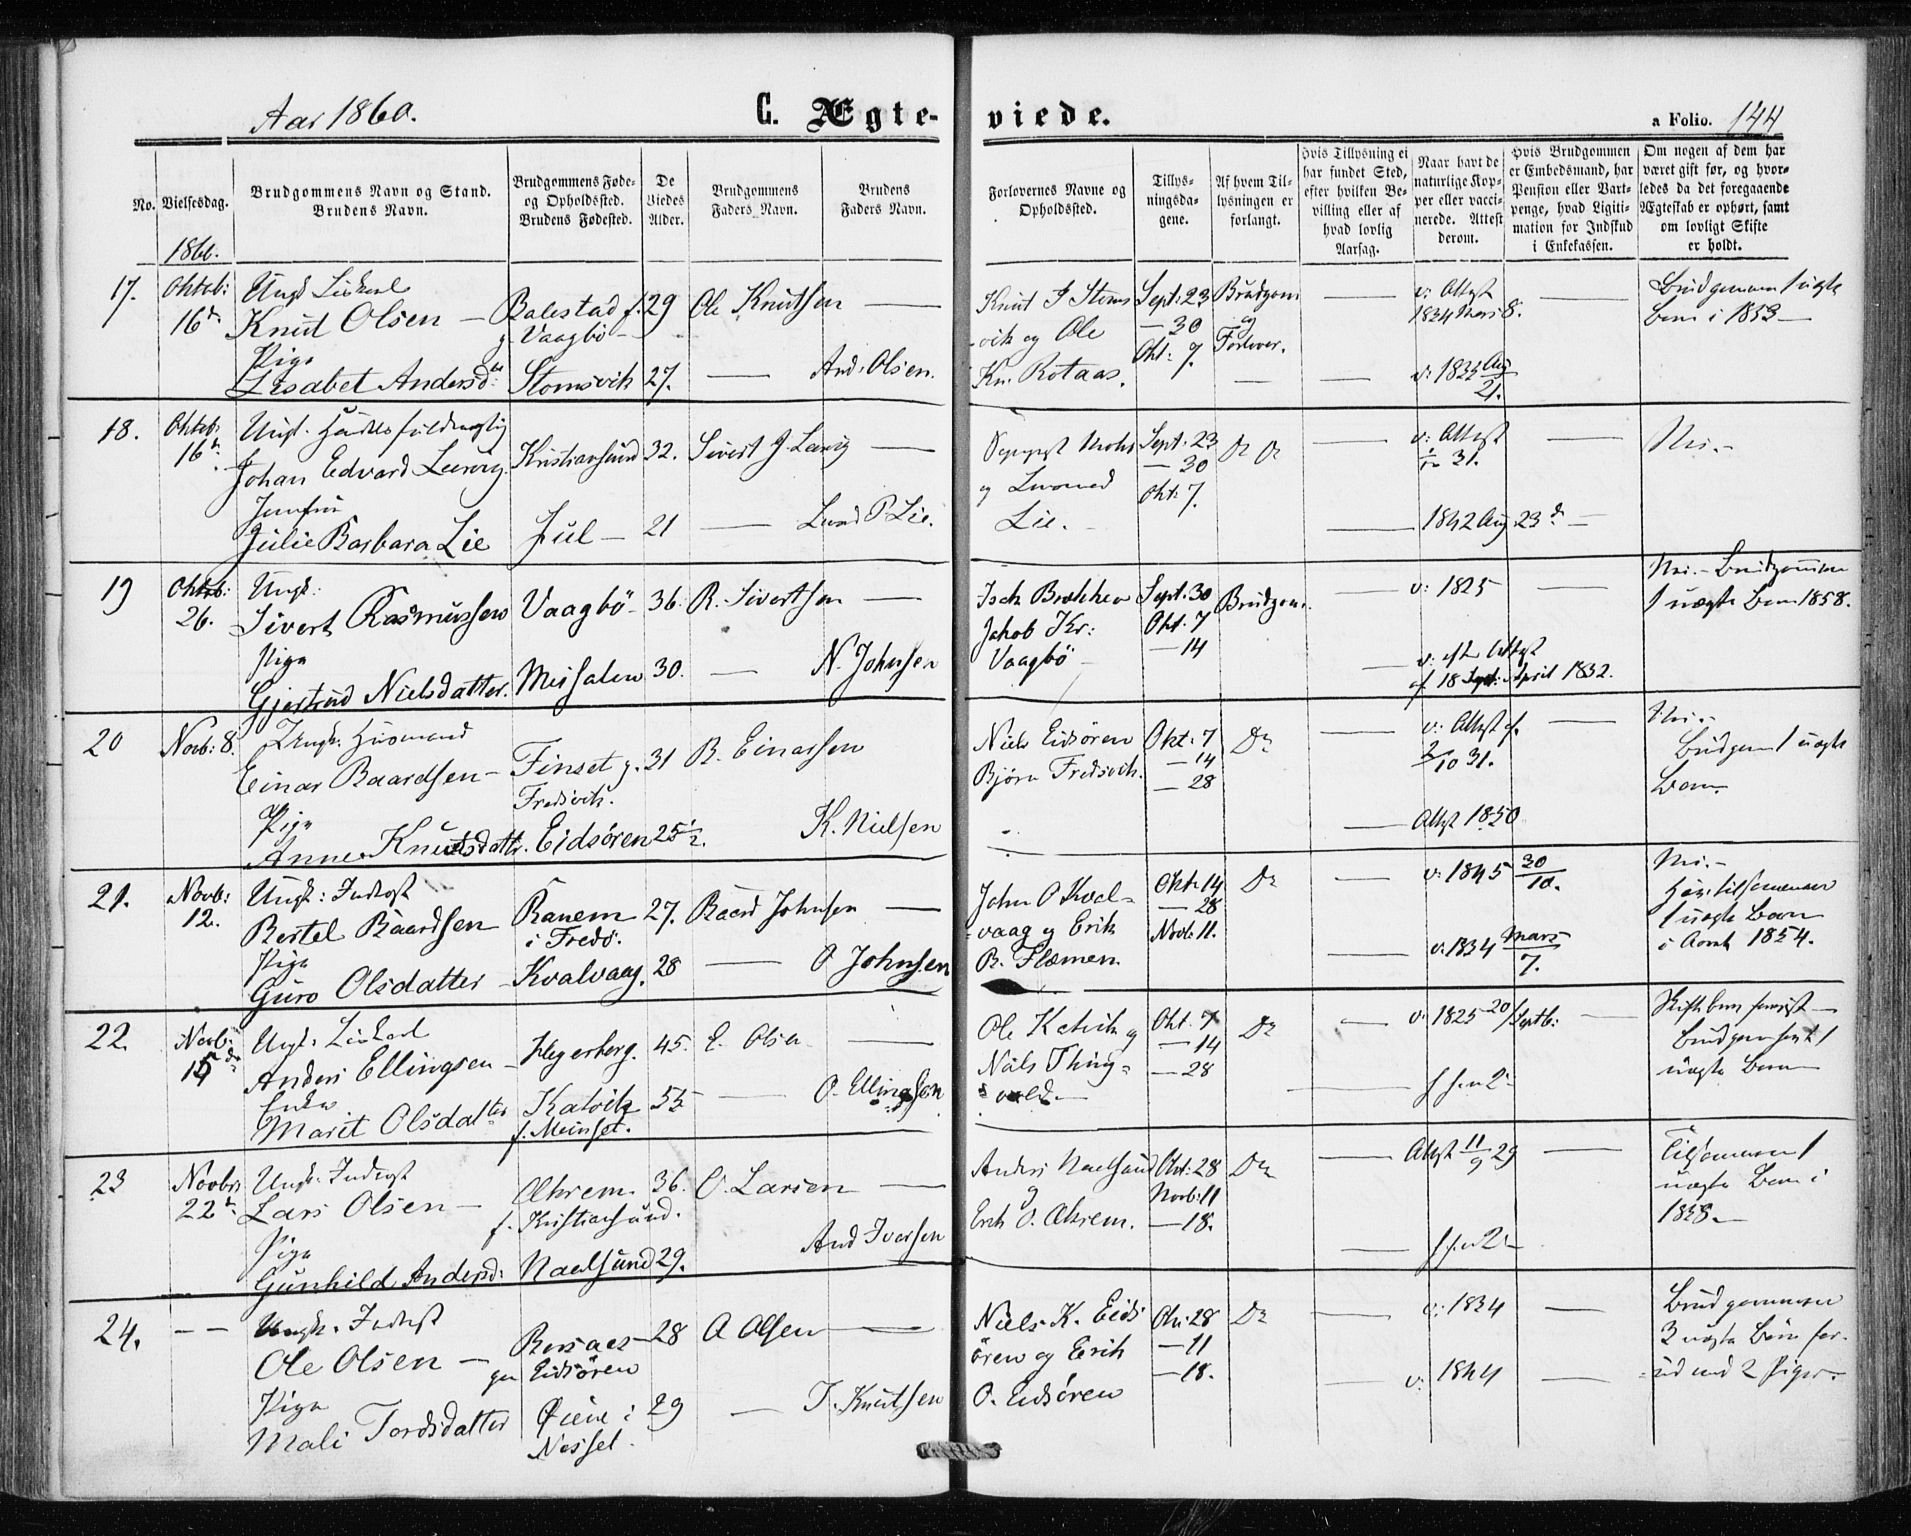 Aar 1860.
C. Ægte-
viede.
a Folio. 144
No.
Vielsesdag.
Brudgommens Navn og Stand.
Brudens Navn.
Brudgommens Føde-
og Opholdssted.
Brudens Fødested.
De
Viedes
Alder.
Brudgommens
Faders Navn.
Brudens
Faders Navn.
Forlovernes Navne og
Opholdssted.
Tillys-
ningsda-
gene.
Af hvem Til-
lysningen er
forlangt.
Hvis Tillysning ei
har fundet Sted,
efter hvilken Be-
villing eller af
hvad lovlig
Aarsag.
Naar havt de
naturlige Kop-
per eller vacci-
nerede. Attest
derom.
Hvis Brudgommen
er Embedsmand, har
Pension eller Vart-
penge, hvad Ligiti-
mation for Indskud
i Enkekassen.
Om nogen af dem har
været gift før, og hvor-
ledes da det foregaaende
Ægteskab er ophørt, samt
om lovligt Skifte
er holdt.
1860.
17. Oktob: 16
Knud Olsen — Balestad f. 29 Ole Knutsen —
g. Vaagbö —
Pige
Lisabet Andersd: Stomsvik 27. — And: Olsen.
Knut J Stoms
-vik og Ole
Kn. Rotaas.
Sept: 23
— 30
Okt: 7.
Brudgom
og
Forlover.
v: Attest
1834 Mars 8.
Brudgommen 1 uægte
Barn i 1853 —
v: 1833 Aug 21.
18. Oktob: 16
Ungk.
Johan Edvard Kristiansund 32. Sivert J. —
Jomfru
Julie Barbara Lie Jul — 21 — P Lie.
og
Lie. —
Sept: 23
— 30
Okt: 7.
v: Attest
31.
1842 Aug 23
Nei. —
19 Oktob: 26.
Ungk:
Sivert Rasmussen Vaagbö — 36. R. Sivertsen —
Pige
Gjertrud Nielsdatter. Meisalen 30. — N. Johnsen
Jakob Kr:
Vaagbö —
Sept: 30
Okt: 7
— 14
Brudgom.
v: 1825
v: Attest
af 18 April 1832.
Nei. — Brudgommen
1 uægte Barn 1858.
20 Novb: 8.
Ungk. Husmand
Einar Baardsen — Finset g. 31 B. Einarsen
Fredsvik.
Pige
Anne Knutsdattr. Eidsören 25 ½. K. Nielsen
Niels Eidsören
Björn Fredsvik.
Okt: 7
— 14
— 28
Do
v: Attest f.
2/10 31.
Attest 1850
Nei. —
Brudgom 1 uægte
Barn.
21. Novb: 12.
Ungk: Inderst
Bertel Baardsen Ranem 27. Baard Johnsen —
i Fredö.
Pige
Guro Olsdatter — Kvalvaag. 28 — O Johnsen
John O Kval-
-vaag og Erik
B. Flemen
Okt: 14
— 28
Novb: 11.
Do
v: 1845 30/10.
v: 1834 Mars 7.
Nei. —
Har tilsammen
1 uægte Barn
i Aaret 1854.
22. Novb: 15de
Ungk:
Anders Ellingsen — Hegerberg. 45. E. Olsen —
Enke
Marit Olsdatter Katvik 55 — O. Ellingsen
f. Meinset.
Ole Katvik og
Nils Thing-
vold. —
Okt. 7
— 14
— 28
Do
v: 1825 20/Septb: —
1
uægte Barn
23 Novbr 22
Ungk: Inderst
Lars Olsen — Ækrem 36. O. Larsen —
f. Kristiansund.
Pige
Gunhild Andersd: Naalsund 29. And Iversen
Anders Naalsund
og
Erik O. Ækrem.
Okt: 28
Novb: 11
— 18.
Do
Attest 11/9 29
Tilsammen 1
uægte Barn i
1858. —
24. — —
Ungk. Inderst
Ole Olsen — 28 O Olsen —
Eidsören
Pige
Mali Tordsdatter Öien i 29 — T. Knutsen
Nesset.
Niels K. Eids
ören og Erik
O. Eidsören
Okt: 28
— 11
— 18.
Do
v: 1834
v: 1844
Brudgommen
3 uægte Börn for-
ud med 2 Piger.